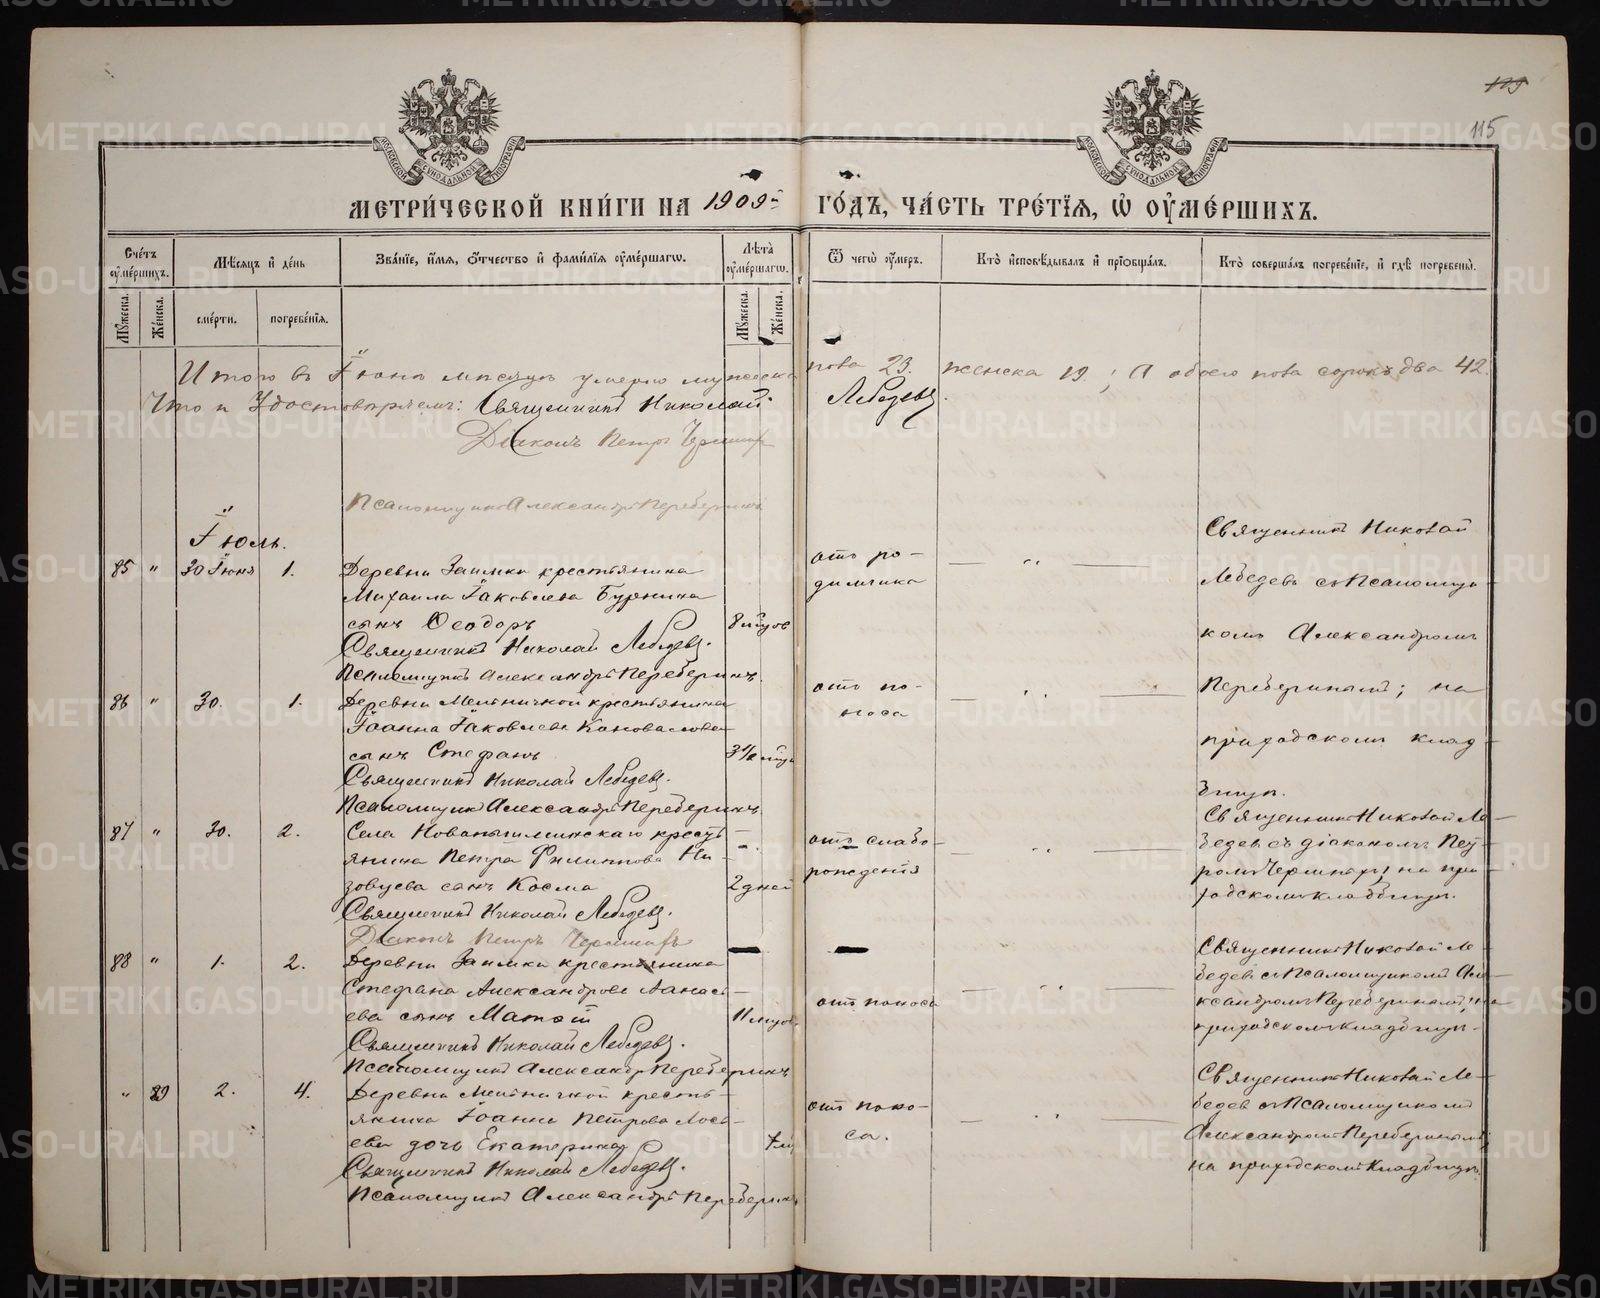 119
115
МОСКОВСКОЙ СѴНОДАЛЬНОЙ ТИПОГРАФІИ
МОСКОВСКОЙ СѴНОДАЛЬНОЙ ТИПОГРАФІИ
МЕТРИ́ЧЕСКОЙ КНИ́ГИ НА 1909 й ГО́ДЪ, ЧА́СТЬ ТРЕ́ТІЯ, Ѡ ОУМЕ́РШИХЪ.
Сче́тъ оуме́ршихъ.
Мѣ́сяцъ и де́нь
Зва́ніе, и́мя, ѻ҆́тчество и фами́лія оуме́ршагѡ.
Лѣта̀ оуме́ршагѡ.
Ѿ чегѡ̀ оу́меръ.
Кто̀ и҆сповѣ́дывалъ и прїѡбща́лъ.
Кто̀ соверша́лъ погребе́ніе, и гдѣ̀ погребены̀.
Мꙋ́жеска.
Же́нска.
сме́рти.
погребе́нія.
Мꙋ́жеска.
Же́нска.
Итого въ Іюнѣ мѣсяцѣ умерло мужеска пола 23. женска 19.; А обоего пола сорокъ два 42.
Что и Удостовѣряемъ: Священникъ Николай Лебедевъ.
Діаконъ Петръ
Псаломщикъ Александръ Переберинъ
Іюль.
85 " 30 Іюня 1.
Деревни Заимки крестьянина
Михаила Іаковлева
сынъ Ѳеодоръ
8 мцовъ
Священникъ Николай Лебедевъ.
Псаломщикъ Александръ Переберинъ.
отъ ро-
димчика
Священникъ Николай
Лебедевъ съ Псаломщи-
комъ Александромъ
Переберинымъ; на
приходскомъ клад-
бищѣ.
86 " 30. 1.
Деревни Мельничной крестьянина
Іоанна Іаковлева Коновалова
сынъ Стефанъ
3½ мца
Священникъ Николай Лебедевъ.
Псаломщикъ Александръ Переберинъ.
отъ по-
носа
87 " 30. 2.
Села Новопышминскаго кресть-
янина Петра Филиппова Ни-
зовцева сынъ Косма
2 дней
Священникъ Николай Лебедевъ.
Діаконъ Петръ
отъ слабо-
рожденія
Священникъ Николай Ле-
бедевъ съ діакономъ Пет-
ромъ на при-
ходскомъ кладбищѣ.
88 " 1. 2.
Деревни Заимки крестьянина
Стефана Александрова Аѳанась-
ева сынъ
11 мцовъ
Священникъ Николай Лебедевъ.
Псаломщикъ Александръ Переберинъ
отъ поноса
Священникъ Николай Ле-
бедевъ съ Псаломщикомъ Але-
ксандромъ Переберинымъ; на
приходскомъ кладбищѣ.
" 89 2. 4.
Деревни Мельничной кресть-
янина Іоанна Петрова Лоса-
ева дочь Екатерина
Священникъ Николай Лебедевъ.
Псаломщикъ Александръ Переберинъ
отъ поно-
са.
Священникъ Николай Ле-
бедевъ съ Псаломщикомъ
Александромъ Переберинымъ
на приходскомъ кладбищѣ.
METRIKI.GASO-URAL.RU